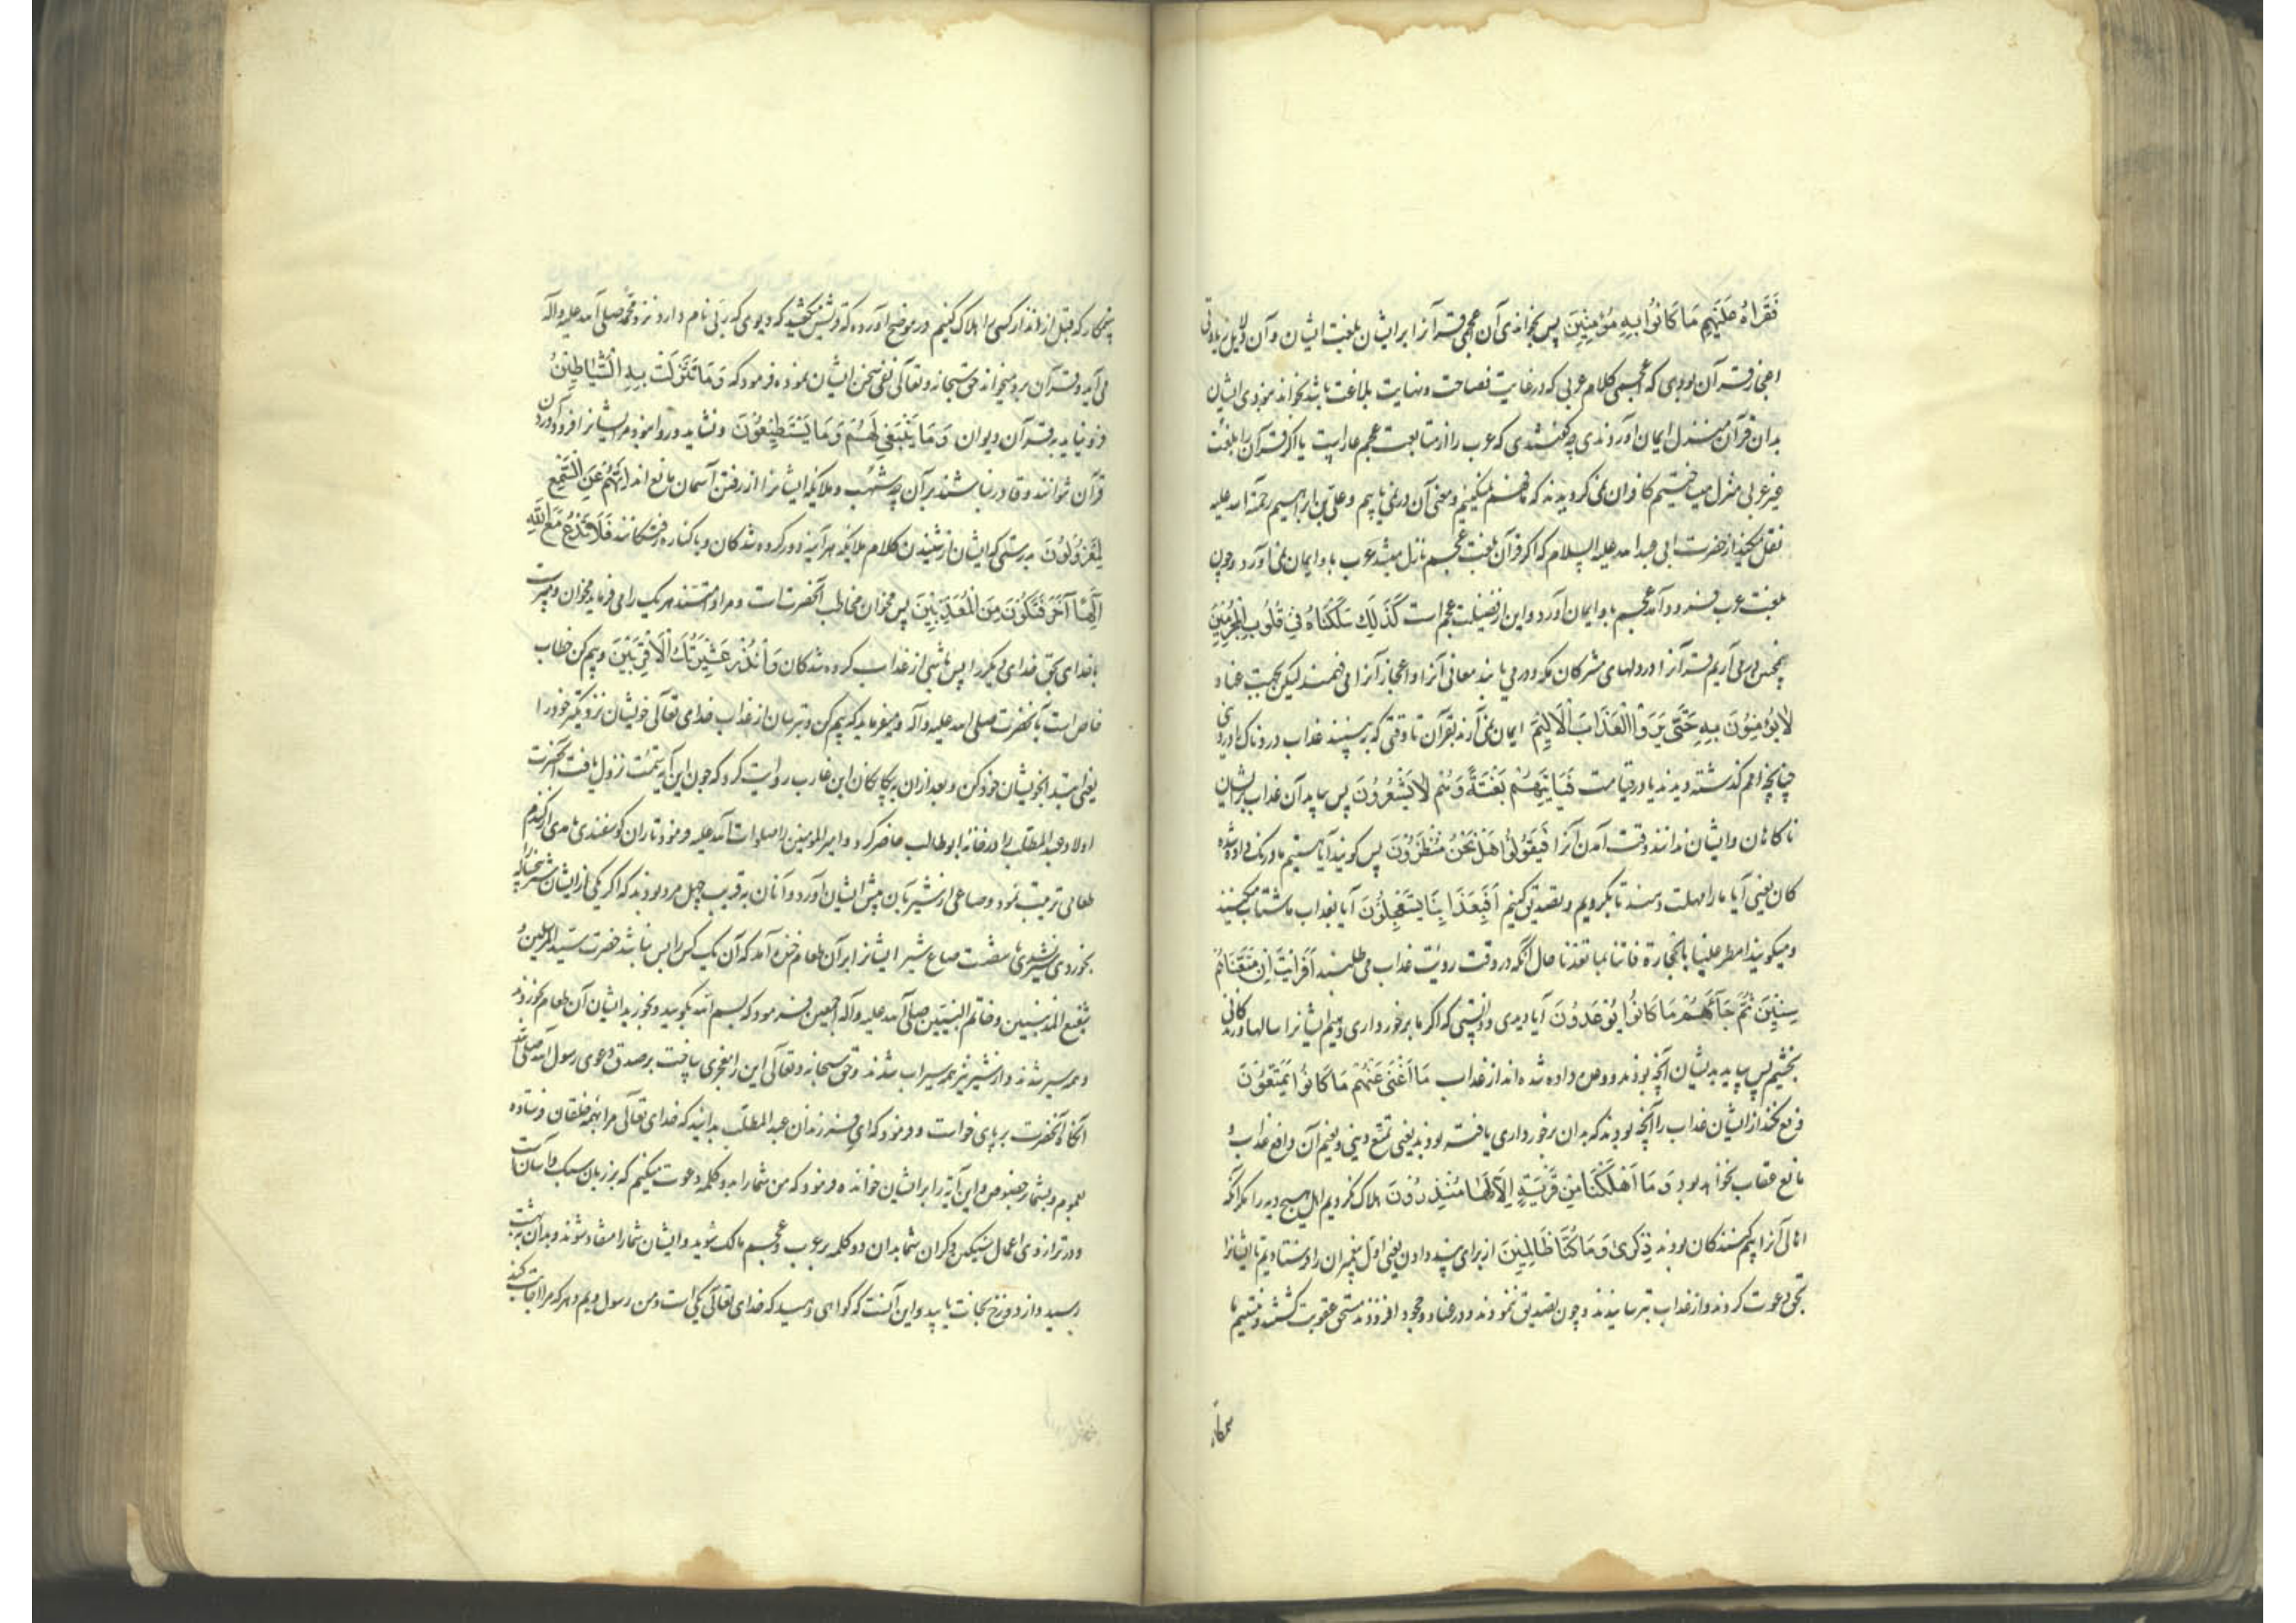 فَقَرَاَهُ عَلَيْهِمْ مَا كَانُوا بِهِ مُؤْمِنِينَ پس بخواندی آن عجمی قرآنرا برایشان بلغت ایشان و آن دلیل
قرآن بودی که اعجمی کلام عربی که در غایت فصاحت و نهایت بلاغت باشد بخواند نبودی ایشان
بدان قرآن منزل ایمان آورنده چه گفتندی که عرب را از متابعت عجم عار است یا اگر قرآن را بلغت
غیر عربی منزل میساختیم کافران نمی گرویدند که ما فهم نمیکنیم و معنی آن در نمی یابیم و علی بن ابراهیم رحمة الله علیه
نقل میکند از حضرت ابی عبد الله علیه السلام که اگر قرآن بلغت عجم نازل میشد عرب باو ایمان نمی آورد و چون
بلغت عرب فرود آمد عجم باو ایمان آورد و این از فضیلت عجم است كَذَلِكَ سَلَكْنَاهُ فِي قُلُوبِ الْمُجْرِمِينَ
همچنین در می آریم قرآنرا در دلهای مشرکان مکه و در می یابند معانی آنرا و اعجاز آنرا می فهمند لیکن بجهت عناد
لَا يُؤْمِنُونَ بِهِ حَتَّى يَرَوُا الْعَذَابَ الْأَلِيمَ ایمان نمی آرند بقرآن تا وقتی که ببینند عذاب دردناک را در دنیا
چنانچه امم گذشته دیدند یا در قیامت فَيَأْتِيَهُمْ بَغْتَةً وَهُمْ لَا يَشْعُرُونَ پس بیاید آن عذاب برایشان
ناکاهان و ایشان ندانند وقت آمدن آنرا فَيَقُولُوا هَلْ نَحْنُ مُنْظَرُونَ پس گویند آیا هستیم ما درنک داده شده
کان یعنی آیا ما را مهلت دهند تا بگرویم و تصدیق کنیم أَفَبِعَذَابِنَا يَسْتَعْجِلُونَ آیا بعذاب ما شتاب میکنند
و میگویند امطر علینا بالحجارة فاتنا بما تعدنا حال آنکه در وقت رؤیت عذاب می طلبند أَفَرَأَيْتَ إِنْ مَتَّعْنَاهُمْ
سِنِينَ ثُمَّ جَاءَهُمْ مَا كَانُوا يُوعَدُونَ آیا دیدی و دانستی که اگر ما برخورداری دهیم ایشانرا سالها و زندگانی
بخشیم پس بیاید بدیشان آنچه بودند وعده داده شده اند از عذاب مَا أَغْنَى عَنْهُمْ مَا كَانُوا يُمَتَّعُونَ
دفع نکند از ایشان عذاب را آنچه بودند که بدان برخورداری یافته بودند یعنی تمتع دنیی و نعیم آن دافع عذاب و
مانع عقاب نخواهد بود وَمَا أَهْلَكْنَا مِنْ قَرْيَةٍ إِلَّا لَهَا مُنْذِرُونَ هلاک نکردیم اهل هیچ دیه را مکر آنکه
اهالی آنرا بیم کنندگان بودند ذِكْرَى وَمَا كُنَّا ظَالِمِينَ از برای پند دادن یعنی اول پیغمبران را فرستادیم تا ایشانرا
بحق دعوت کردند و از عذاب بترسانیدند و چون تصدیق ننمودند و در عناد و جحود افزودند مستحق عقوبت گشتند و نیستیم ما
ستمکار
ستمکار که قبل از انذار کسی را هلاک کنیم در موضح آورده که قریش گفتند که دیوی که ربی نام دارد نزد محمد صلی الله علیه و آله
می آید و قرآن برو میخواند حق سبحانه و تعالی نفی سخن ایشان نموده فرمود که وَمَا تَنَزَّلَتْ بِهِ الشَّيَاطِينُ
و فرو نیاید به قرآن دیوان وَمَا يَنْبَغِي لَهُمْ وَمَا يَسْتَطِيعُونَ و نشاید و روا نبود مر ایشانرا فرود آوردن
قرآن نتوانند و قادر نباشند بر آن چه شهب و ملائکه ایشانرا از رفتن آسمان مانع اند إِنَّهُمْ عَنِ السَّمْعِ
لَمَعْزُولُونَ بدرستی که ایشان از شنیدن کلام ملائکه هر آینه دور کرده شدگان و با کناره رفتگانند فَلَا تَدْعُ مَعَ اللَّهِ
إِلَهًا آخَرَ فَتَكُونَ مِنَ الْمُعَذَّبِينَ پس مخوان مخاطب آنحضرتست و مراد امتند هر یک را می فرماید مخوان و مپرست
با خدای بحق خدای دیگر را پس باشی از عذاب کرده شدگان وَأَنْذِرْ عَشِيرَتَكَ الْأَقْرَبِينَ و بیم کن خطاب
خاص است بآنحضرت صلی الله علیه و آله و میفرماید که بیم کن و بترسان از عذاب خدای تعالی خویشان نزدیکتر خود را
یعنی ابتدا بخویشان خود کن و بعد از ان به بیکانکان ابن عازب روایت کرد که چون این آیه سمت نزول یافت آنحضرت
اولاد عبد المطلب را در خانه ابو طالب حاضر کرد و امیر المومنین را صلوات الله علیه فرمود تا ران کوسفندی با مدی از گندم
طعامی ترتیب نمود و صاعی از شیر بآن پیش ایشان آورد و آنان به قریب چهل مرد بودند که اگر یکی از ایشان
بخوردی سیر نشدی با هشت صاع شیر ایشانرا بر آن طعام خنده آمد که آن یک کس را بس نباشد حضرت سید المرسلین و
شفیع المذنبین و خاتم النبیین صلی الله علیه و آله اجمعین فرمود که بسم الله بگویید و بخورید ایشان آن طعام بخوردند
و همه سیر شدند و از شیر نیز همه سیراب شدند و حق سبحانه و تعالی این را معجزی ساخت بر صدق دعوی رسول الله صلی الله
آنگاه آنحضرت بر پای خواست و فرمود که ای فرزندان عبد المطلب بدانید که خدای تعالی مرا بهمه خلقان فرستاده
بعموم و بشما بخصوص و این آیه را بر ایشان خوانده فرمود که من شما را بدو کلمه دعوت میکنم که بر زبان سبک و آسان است
و در ترازوی اعمال سنگین و گران شما بدان دو کلمه بر عرب و عجم مالک شوید و ایشان شما را منقاد شوند و بدان به بهشت
رسید و از دوزخ نجات یابید و این آنست که گواهی دهید که خدای تعالی یکی است و من رسول ویم و هر که مرا اجابت کند